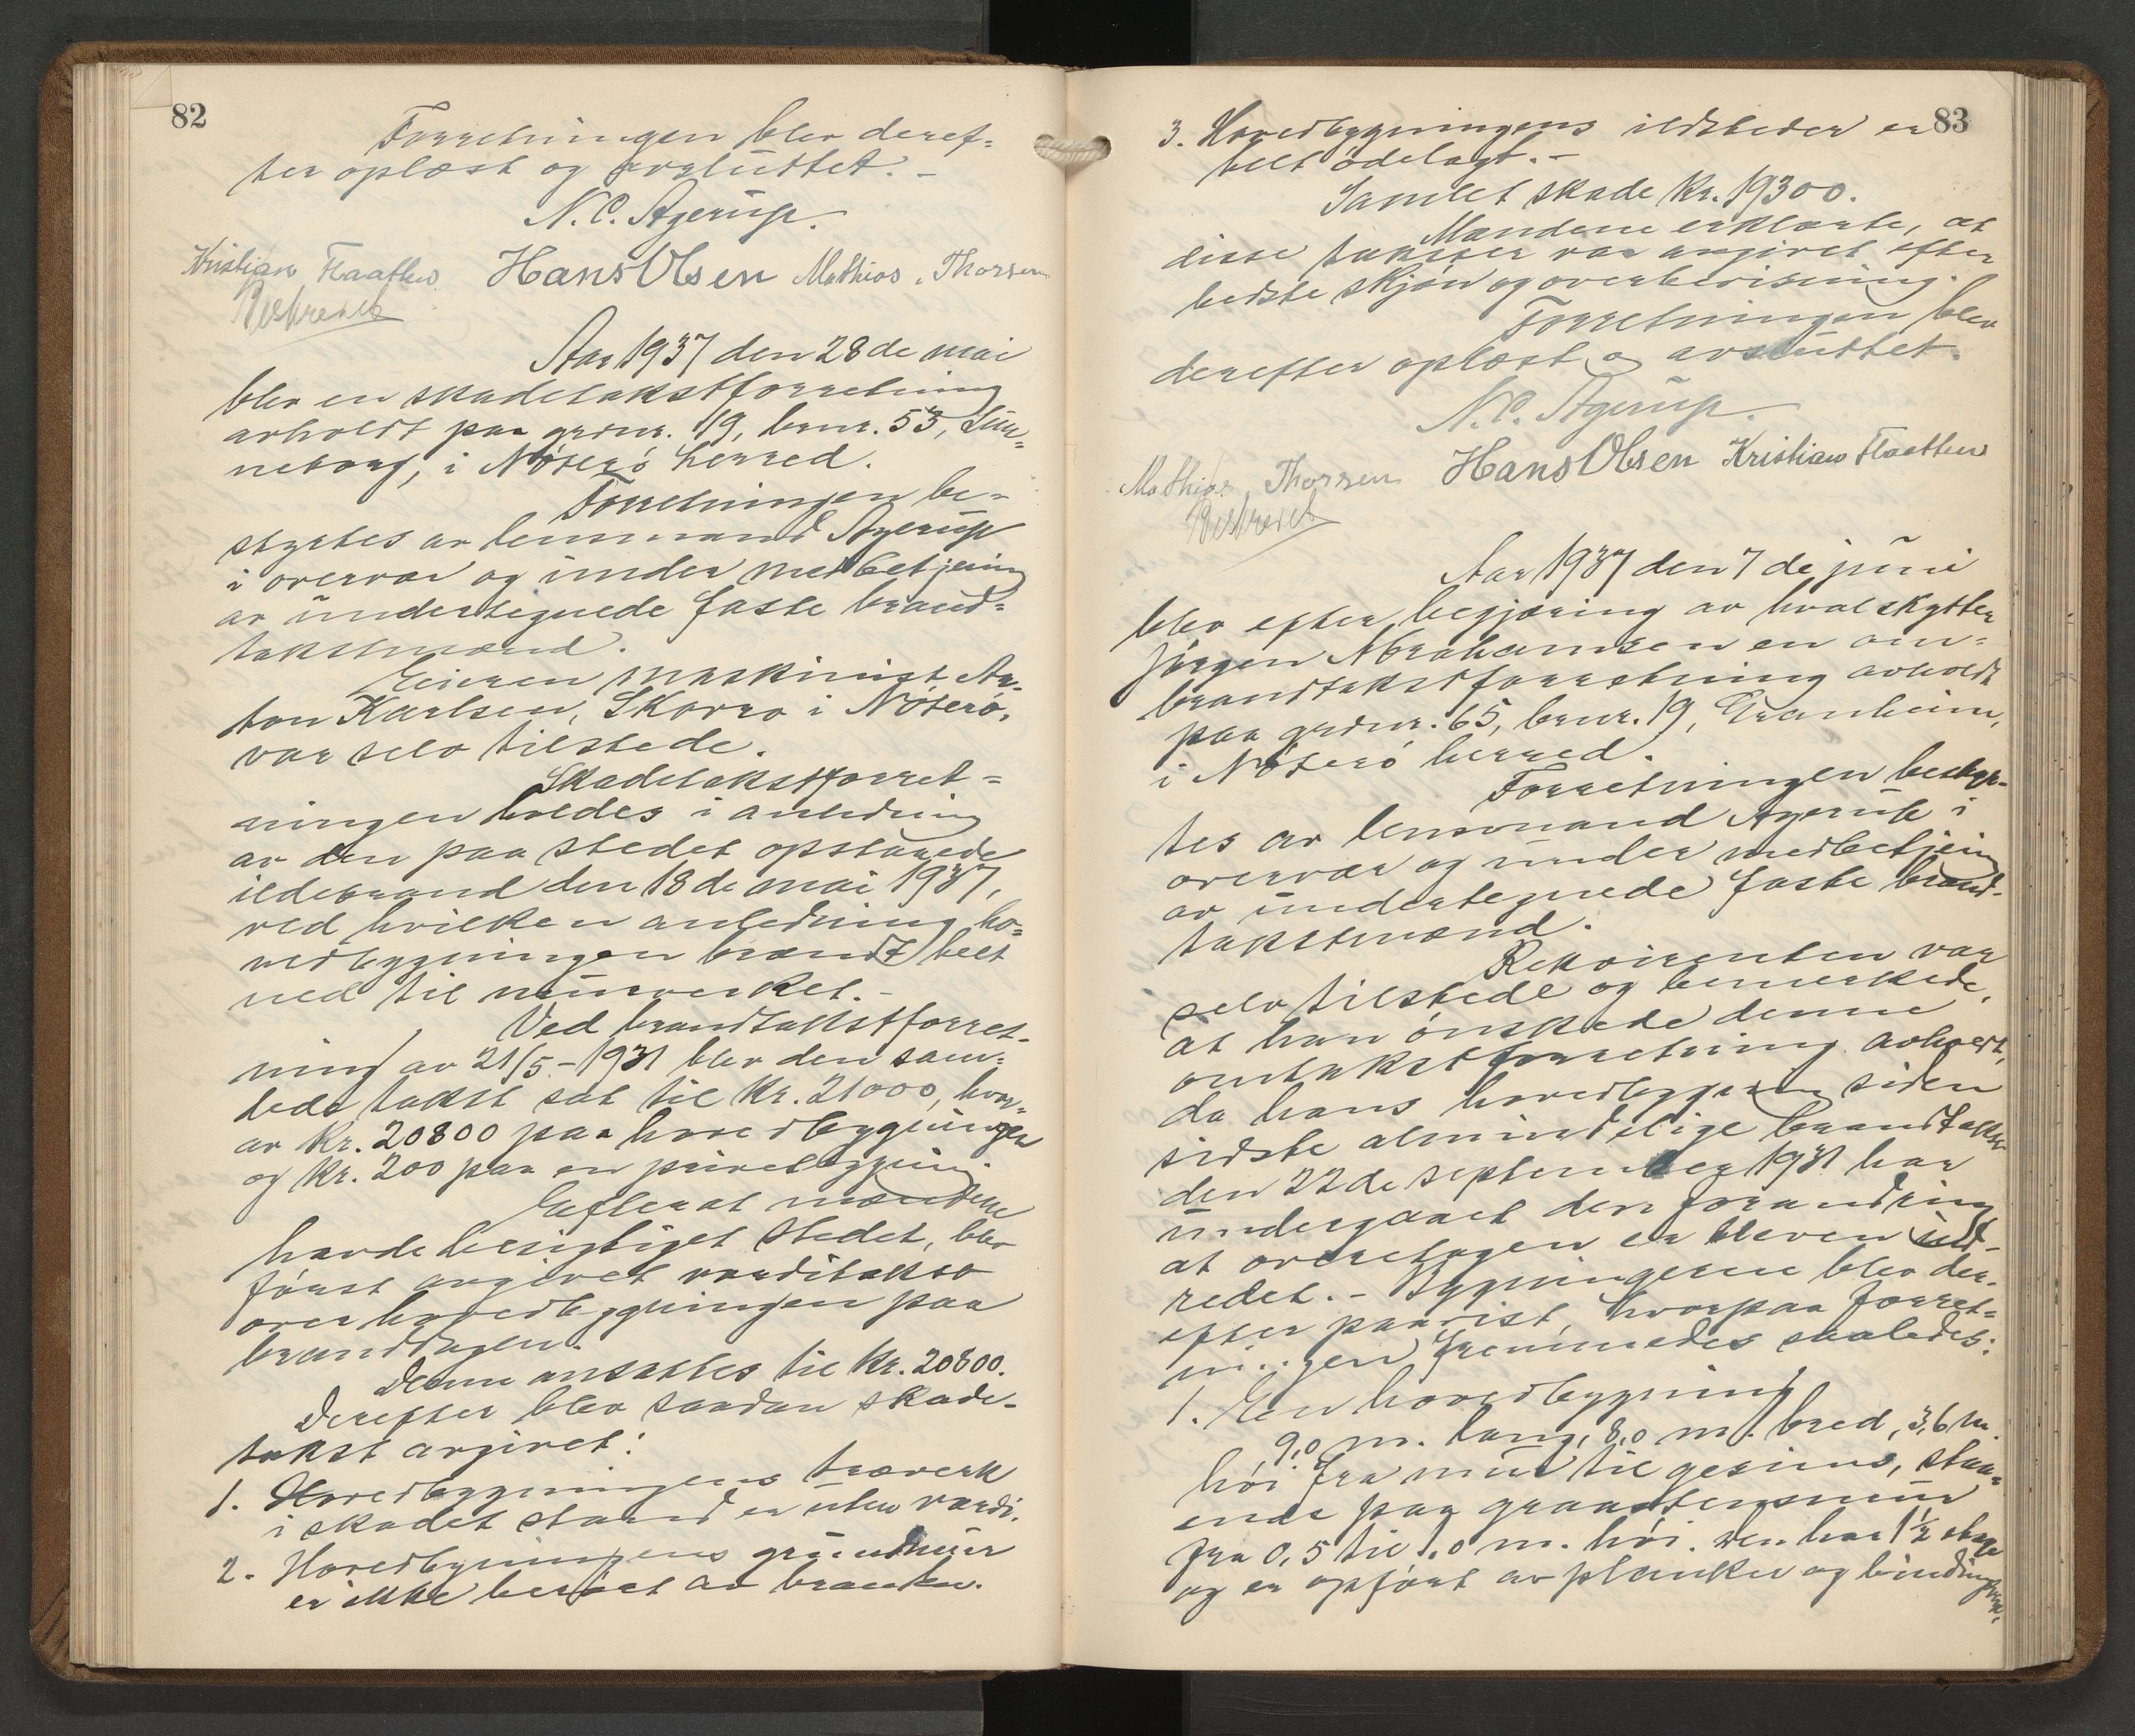 82
Forretningen blev deref-
ter oplæst og avsluttet. -
N. C. Agerup.
Kristian Flaathen Hans Olsen Mathias Thorsen
Beskrevet
Aar 1937 den 28de mai
blev en skadetakstforretning
avholdt paa grdnr. 19, brnr. 53, Lin-
neborg, i Nøterø herred.
Forretningen be-
styrtes av lensmand Agerup
i overvær og under medbetjening
av undertegnede faste brand-
takstmænd.
Eieren maskinist An-
ton Karlsen, Skarrø i Nøterø,
var selv tilstede.
Skadetakstforret-
ningen holdes i anledning
av den paa stedet opstaaede
ildebrand den 18de mai 1937,
ved hvilken anledning ho-
vedbygningen brændt helt
ned til murverket. -
Ved brandtakstforret-
ning av 21/5-1931 blev den sam-
lede takst sat til kr. 21000, hvor-
av kr. 20800 paa hovedbygningen
og kr. 200 paa en privetbygning.
Efter at mændene
havde besigtiget stedet, blev
først avgivet værditakst
over hovedbygningen paa
branddagen.
Denne ansattes til kr. 20800.
Derefter blev saadan skade-
takst avgivet:
1. Hovedbygningens træverk
i skadet stand er uten værdi.
2. Hovedbygningens grundmur
er ikke berørt av branden.
83
3. Hovedbygningens ildsteder er
helt ødelagt. -
Samlet skade kr. 19300.
Mændene erklærte, at
disse takster var avgivet efter
bedste skjøn og overbevisning.
Forretningen blev
derefter oplæst og avsluttet.
N. C. Agerup.
Mathias Thorsen Hans Olsen Kristian Flaathen
Beskrevet
Aar 1937 den 7de juni
blev efter begjæring av hvalskytter
Jørgen Abrahamsen en om-
brandtakstforretning avholdt
paa grdnr. 65, brnr. 19, Granheim,
i Nøterø herred.
Forretningen bestyr-
tes av lensmand Agerup i
overvær og under medbetjening
av undertegnede faste brand-
takstmænd.
Rekvirenten var
selv tilstede og bemerkede,
at han ønskede denne
omtakstforretning avholdt,
da hans hovedbygning siden
sidste almindelige brandtakst
den 22de september 1931 har
undergaaet den forandring
at overetagen er bleven ind-
redet. - Bygningerne blev der-
efter paavist, hvorpaa forret-
ningen fremmedes saaledes:
1. En hovedbygning
9,0 m. lang, 8,0 m. bred, 3,6 m.
høi fra mur til gesims, staa-
ende paa graastensmur
fra 0,5 til 1,0 m. høi. Den har 1½ etage
og er opført av planker og bindingsverk.